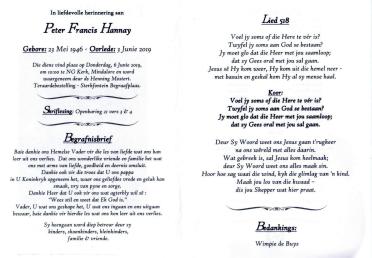 In liefdevolle herinnering aan
Peter Francis Hannay
Gebore: 23 Mei 1946 - Oorlede: 3 Junie 2019
Die diens vind plaas op Donderdag, 6 Junie 2019,
om 10:00 te NG Kerk, Mindalore en word
waargeneem deur ds Henning Mostert.
Teraardebestelling - Sterkfontein Begraafplaas.
Skriflesing: Openbaring 21 vers 3 & 4
Begrafnisbrief
Baie dankie ons Hemelse Vader vir die les wat ons kon
leer uit ons verlies. Dat ons wonderlike vriende en familie het wat
ons met arms van liefde, goedheid en deernis omsluit.
Dankie ook vir die troos dat U ons pappa
in U Koninkryk opgeneem het, waar ons geliefdes vrede en geluk kan
smaak, vry van pyne en sorge.
Dankie Heer dat U ook vir ons wat agterbly wil sê :
"Wees stil en weet dat Ek God is."
Vader, U wat ons geskape het, U wat ons ingaan en ons uitgaan
bewaar, baie dankie vir hierdie les wat ons kon leer uit ons verlies.
Sy heengaan word diep betreur deur sy
kinders, skoonkinders, kleinkinders,
familie & vriende.
Lied 528
Voel jy soms of die Here te vér is?
Twyfel jy soms aan God se bestaan?
Jy moet glo dat die Heer met jou saamloop;
dat sy Gees oral met jou sal gaan.
Jesus sê Hy kom weer, Hy kom uit die hemel neer -
met basuin en geskal kom Hy al sy mense haal.
Koor:
Voel jy soms of die Here te vér is?
Twyfel jy soms aan God se bestaan?
Jy moet glo dat die Heer met jou saamloop;
dat sy Gees oral met jou sal gaan.
Deur Sy Woord weet ons Jesus gaan t'rugkeer
na ons wêreld met alles daarin.
Wat gebreek is, sal Jesus kom heelmaak;
deur sy Woord weet ons alles maak sin.
Hoor hoe sag waai die wind, kyk die glimlag van 'n kind.
Maak jou los van die kwaad -
dis jou Skepper wat hier praat.
Bedankings:
Wimpie de Buys